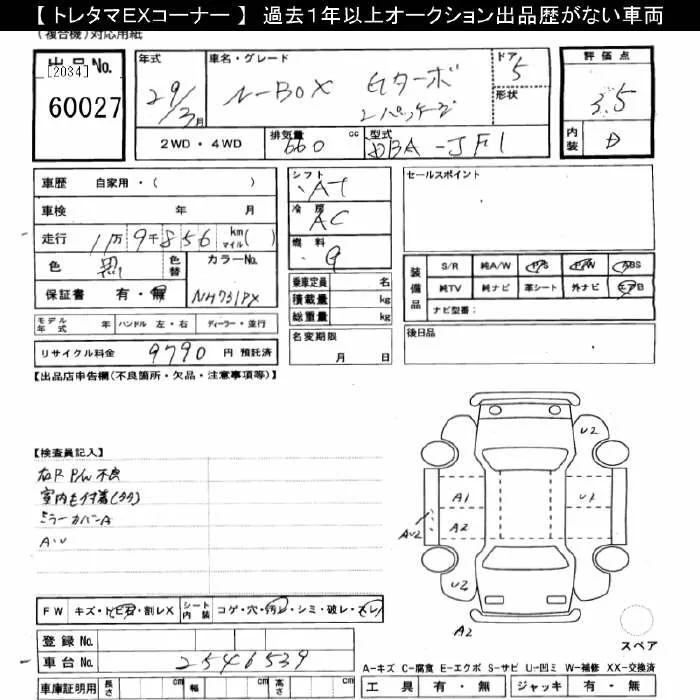 【 トレタマEXコーナー 】 過去1年以上オークション出品歴がない車両
(複合機)対応用紙
出品No.
[2034]
60027
年式
29/3月
車名・グレード
N-BOX Gターボ
Lパッケージ
ドア
5
形状
評価点
3.5
内装
D
2WD・4WD
排気量
660 cc
型式
DBA-JF1
車歴 自家用・( )
車検 年 月
走行 1万9千856 km マイル ( )
色 黒 色替 カラーNo.
NH731PX
保証書 有・無
モデル年式 年 ハンドル 左・右 ディーラー・並行
リサイクル料金 9790 円 預託済
シフト
AT
冷房
AC
燃料
G
乗車定員 名
積載量 kg
総重量 kg
名変期限
月 日
セールスポイント
装備品
S/R 純A/W P/S P/W ABS
純TV 純ナビ 革シート 外ナビ エアB
ナビ型番:
後日品
【出品店申告欄(不良箇所・欠品・注意事項等)】
【検査員記入】
右R P/W 不良
ミラーカバーA
A・U
U2
A1
U1
A2
AU2
U2
A2
スペア
FW キズ・トビ石・割レX シート内装 コゲ・穴・汚レ・シミ・破レ・スレ
登録No.
車台No. 2546539
車庫証明用 長さ cm 幅 cm 高さ cm
A-キズ C-腐食 E-エクボ S-サビ U-凹ミ W-補修 XX-交換済
工具 有・無 ジャッキ 有・無